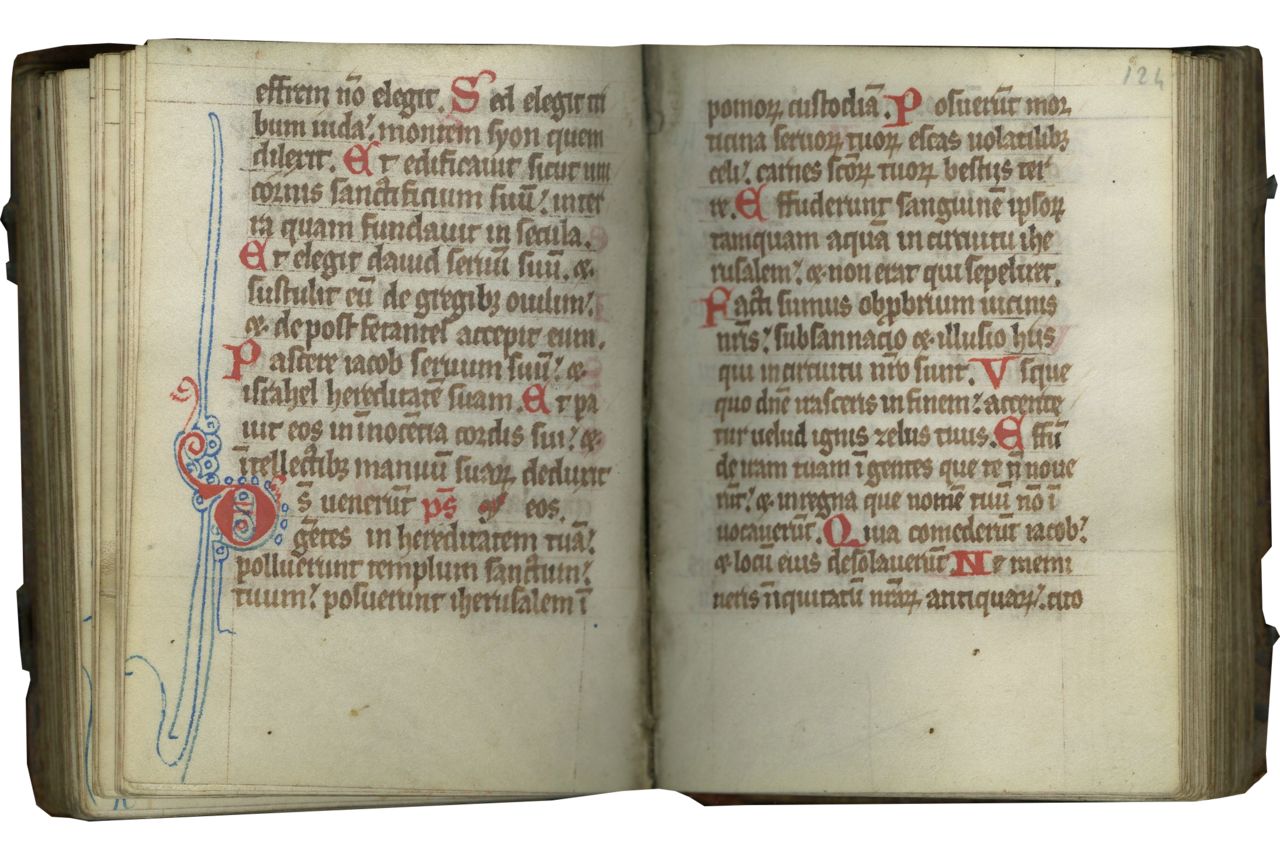 effrem nō elegit. Sed elegit tri
bum iuda: montem syon quem
dilexit. Et edificauit sicut uni
cornis sanctificium suū: in ter
ra quam fundauit in secula.
Et elegit dauid seruū suū. &
sustulit eū de gregibꝫ ouium:
& de post fetantes accepit eum.
Pascere iacob seruum suū: &
israhel hereditatē suam. Et pa
uit eos in īnocētia cordis sui: &
ītellectibꝫ manuū suaꝝ deduxit
Ds̄ uenerūt ps̄ eos.
gētes in hereditatem tuā:
polluerunt templum sanctum:
tuum: posuerunt iherusalem ī
124
pomoꝝ custodiā. Posuerūt mor
ticina seruoꝝ tuoꝝ escas uolatilibꝫ
celi: carnes scōꝝ tuoꝝ bestijs ter
re. Effuderunt sanguinē ipsoꝝ
tamquam aquā in circuitu ihe
rusalem: & non erat qui sepeliret.
Facti sumus obprobrium uicinis
nr̄is: subsannacio & illusio hiis
qui in circuitu nr̄o sunt. Vsque
quo dn̄e irasceris in finem: accende
tur uelud ignis zelus tuus. Effū
de iram tuam ī gentes que te n̄ noue
rūt: & in regna que nomē tuū nō ī
uocauerūt. Quia comederūt iacob:
& locū eius desolauerūt Ne memi
neris īiquitatū nr̄aꝝ antiquaꝝ: cito